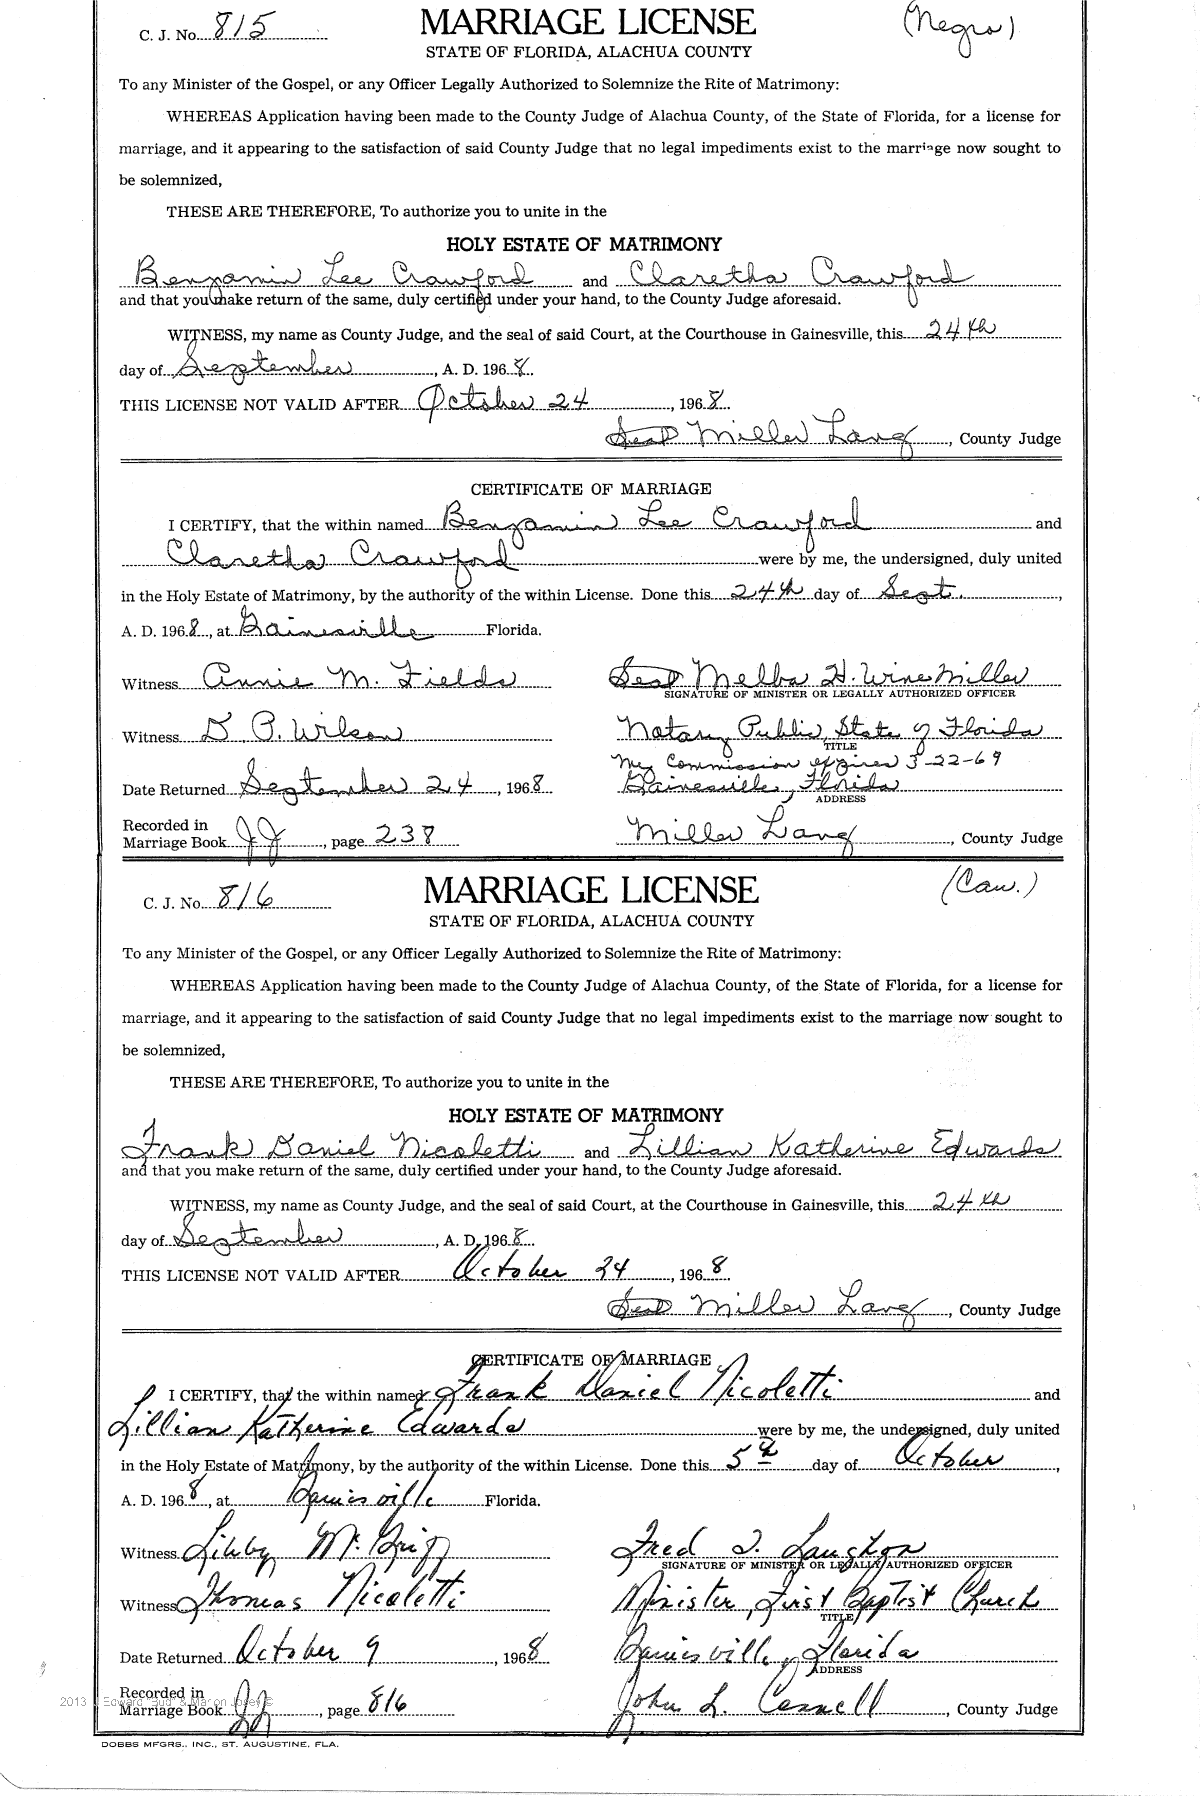 C. J. No. 815
MARRIAGE LICENSE
(Negro)
STATE OF FLORIDA, ALACHUA COUNTY
To any Minister of the Gospel, or any Officer Legally Authorized to Solemnize the Rite of Matrimony:
WHEREAS Application having been made to the County Judge of Alachua County, of the State of Florida, for a license for
marriage, and it appearing to the satisfaction of said County Judge that no legal impediments exist to the marriage now sought to
be solemnized,
THESE ARE THEREFORE, To authorize you to unite in the
HOLY ESTATE OF MATRIMONY
Benjamin Lee Crawford and Claretha Crawford
and that you make return of the same, duly certified under your hand, to the County Judge aforesaid.
WITNESS, my name as County Judge, and the seal of said Court, at the Courthouse in Gainesville, this 24th
day of September, A. D. 1968.
THIS LICENSE NOT VALID AFTER October 24, 1968.
Seal Miller Lang, County Judge
CERTIFICATE OF MARRIAGE
I CERTIFY, that the within named Benjamin Lee Crawford and
Claretha Crawford were by me, the undersigned, duly united
in the Holy Estate of Matrimony, by the authority of the within License. Done this 24th day of Sept.,
A. D. 1968, at Gainesville Florida.
Witness Annie M. Fields
Seal Melba H. WineMiller
SIGNATURE OF MINISTER OR LEGALLY AUTHORIZED OFFICER
Witness D. P. Wilson
Notary Public, State of Florida
TITLE
My Commission expires 3-22-69
Date Returned September 24, 1968
Gainesville, Florida
ADDRESS
Recorded in
Marriage Book JJ, page 238
Miller Lang, County Judge
C. J. No. 816
MARRIAGE LICENSE
(Cau.)
STATE OF FLORIDA, ALACHUA COUNTY
To any Minister of the Gospel, or any Officer Legally Authorized to Solemnize the Rite of Matrimony:
WHEREAS Application having been made to the County Judge of Alachua County, of the State of Florida, for a license for
marriage, and it appearing to the satisfaction of said County Judge that no legal impediments exist to the marriage now sought to
be solemnized,
THESE ARE THEREFORE, To authorize you to unite in the
HOLY ESTATE OF MATRIMONY
Frank Daniel Nicoletti and Lillian Katherine Edwards
and that you make return of the same, duly certified under your hand, to the County Judge aforesaid.
WITNESS, my name as County Judge, and the seal of said Court, at the Courthouse in Gainesville, this 24th
day of September, A. D. 1968.
THIS LICENSE NOT VALID AFTER October 24, 1968
Seal Miller Lang, County Judge
CERTIFICATE OF MARRIAGE
I CERTIFY, that the within named Frank Daniel Nicoletti and
Lillian Katherine Edwards were by me, the undersigned, duly united
in the Holy Estate of Matrimony, by the authority of the within License. Done this 5th day of October,
A. D. 1968, at Gainesville Florida.
Witness Libby
Fred T. Laughon
SIGNATURE OF MINISTER OR LEGALLY AUTHORIZED OFFICER
Witness Thomas Nicoletti
Minister, First Baptist Church
TITLE
Date Returned October 9, 1968
Gainesville, Florida
ADDRESS
Recorded in
Marriage Book JJ, page 816
John L. Connell, County Judge
2013 Edward "Bud" & Marion Josey ©
DOBBS MFGRS., INC., ST. AUGUSTINE, FLA.